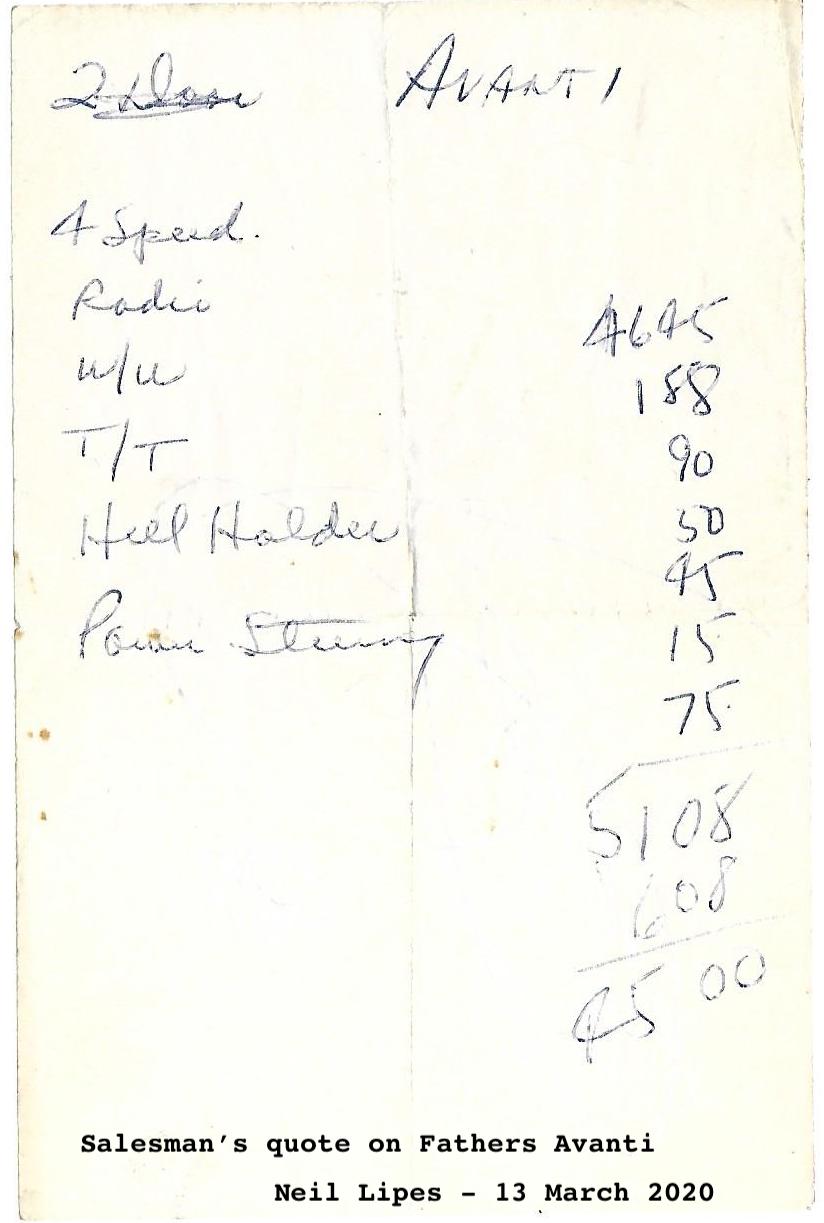 2 Door AVANTI
4 Speed.
Radio 4645
W/W 188
T/T 90
Hill Holder 50
45
Power Steering 15
75
5108
608
4500
Salesman's quote on Fathers Avanti
Neil Lipes - 13 March 2020